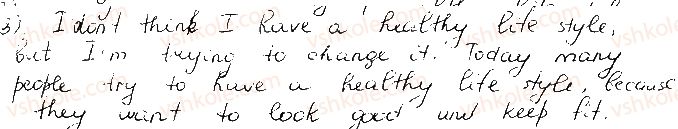 3). I don't think I have a healthy life style,
but I'm trying to change it. Today many
people try to have a healthy life style, because
they want to look good and keep fit.